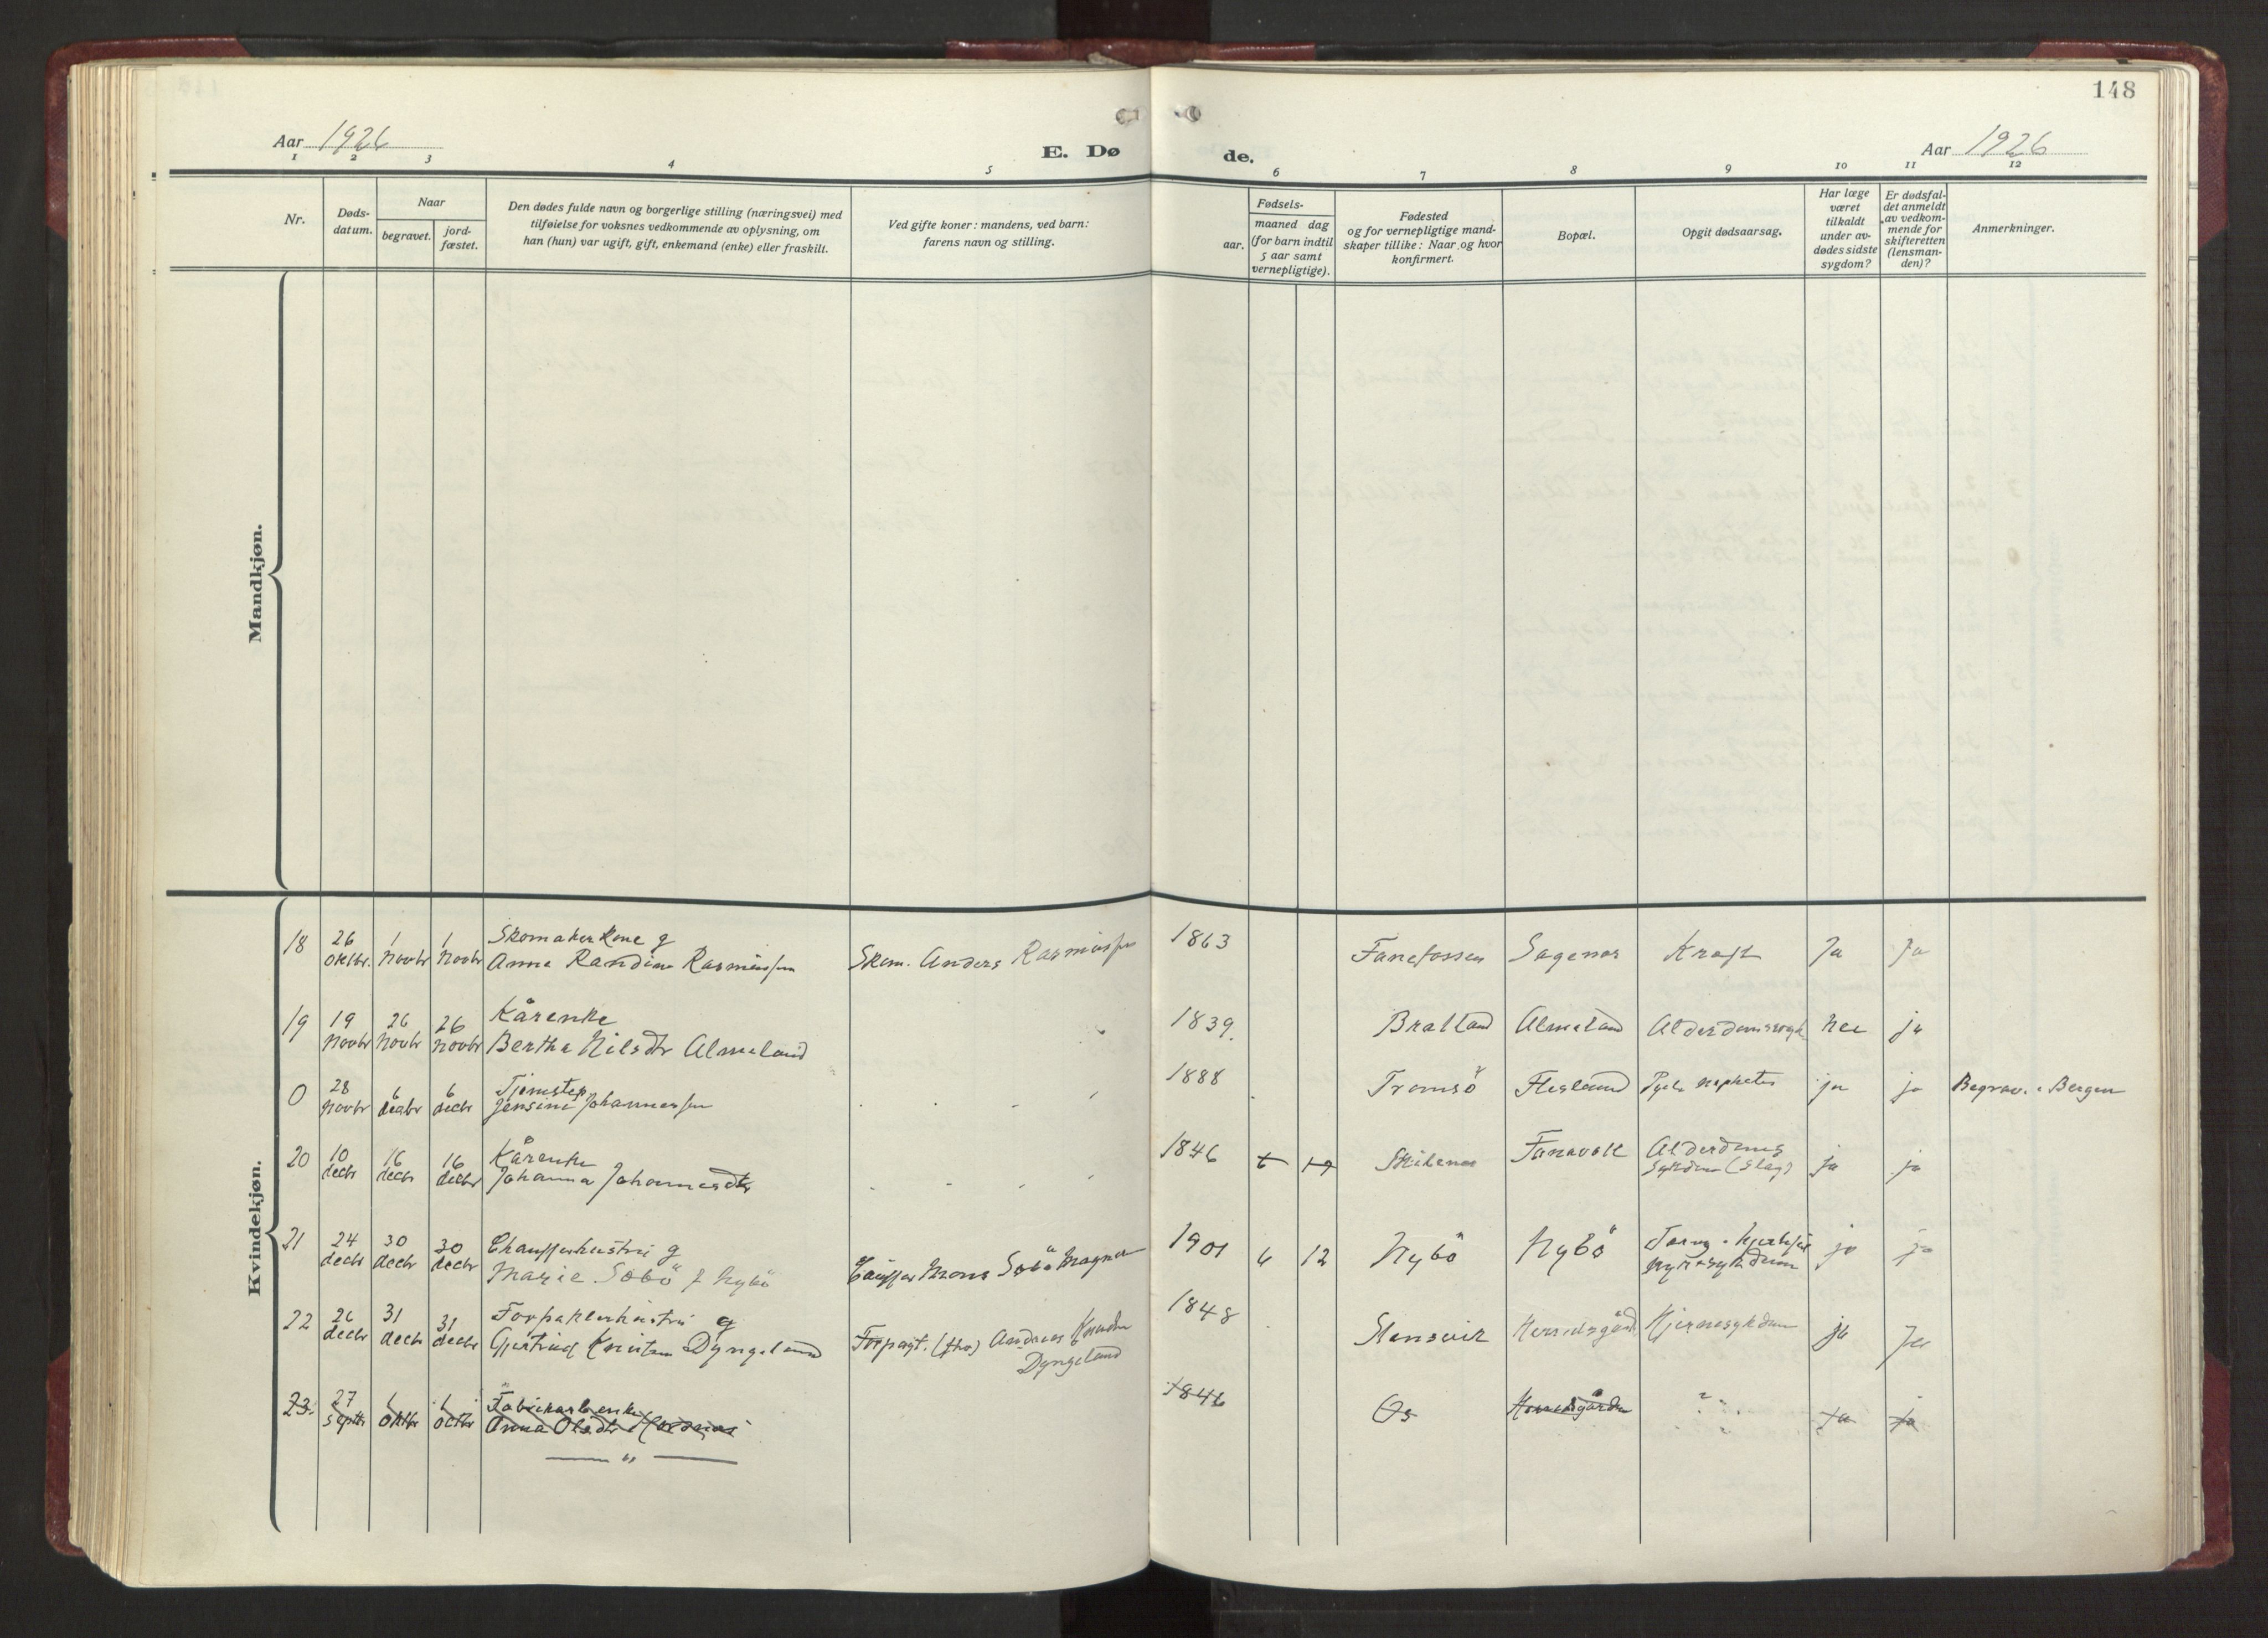 148
Aar 1926
E. Dø
de.
Aar 1926
1 2 3 4 5 6 7 8 9 10 11 12
Nr.
Døds-
datum.
Naar
begravet.
jord-
fæstet.
Den dødes fulde navn og borgerlige stilling (næringsvei) med
tilføielse for voksnes vedkommende av oplysning, om
han (hun) var ugift, gift, enkemand (enke) eller fraskilt.
Ved gifte koner: mandens, ved barn:
farens navn og stilling.
Fødsels-
aar.
maaned dag
(for barn indtil
5 aar samt
vernepligtige).
Fødested
og for vernepligtige mand-
skaper tillike: Naar og hvor
konfirmert.
Bopæl.
Opgit dødsaarsag.
Har læge
været
tilkaldt
under av-
dødes sidste
sygdom?
Er dødsfal-
det anmeldt
av vedkom-
mende for
skifteretten
(lensman-
den)?
Anmerkninger.
Mandkjøn.
Kvindekjøn.
18 26 1 1 Skomakerkone g 1863
oktbr. Novbr Novbr Anna Randine Rasmussen Skom. Anders Rasmussen Fanefossen Sagenes Kræft Ja Ja
19 19 26 26 Kårenke 1839.
Novbr Novbr Novbr Bertha Nilsdtr Almeland Bratland Almeland Alderdomssvagh nei ja
0 28 6 6 Tjenstep 1888
Novbr decbr decbr Jensine Johannessen Tromsö Flesland ja ja Begrav. i Bergen
20 10 16 16 Kårenke 1846 6 19 Fanavoll Alderdoms
decbr decbr decbr Johanna Johannesdtr Skilenes sykdom (Slag) ja ja
21 24 30 30 Chaufførhustru g 1901 6 12 Nybö Nybö
decbr decbr decbr Marie Söbö f Nybö Mons Söbö Magnus nyresykdom ja ja
22 26 31 31 Forpakterhustru g 1848
decbr decbr decbr Gjertrud Knutsen Dyngeland Forpagt. (fhv) Andreas Knudsen Stensvik Hjernesykdom ja ja
Dyngeland
23. 27 1 1 1846
septbr oktbr octbr Anna Olsdtr Os ja ja
— " —